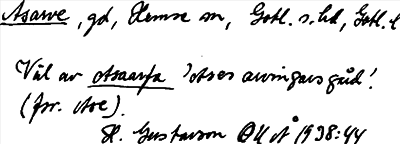 Asarve, gd, Hemse sn, Gotl. s. hd, Gotl. l
Väl av Asaarfa 'Ases arvingars gård'.
(jfr. Ase).
H. Gustavson OUÅ 1938:44